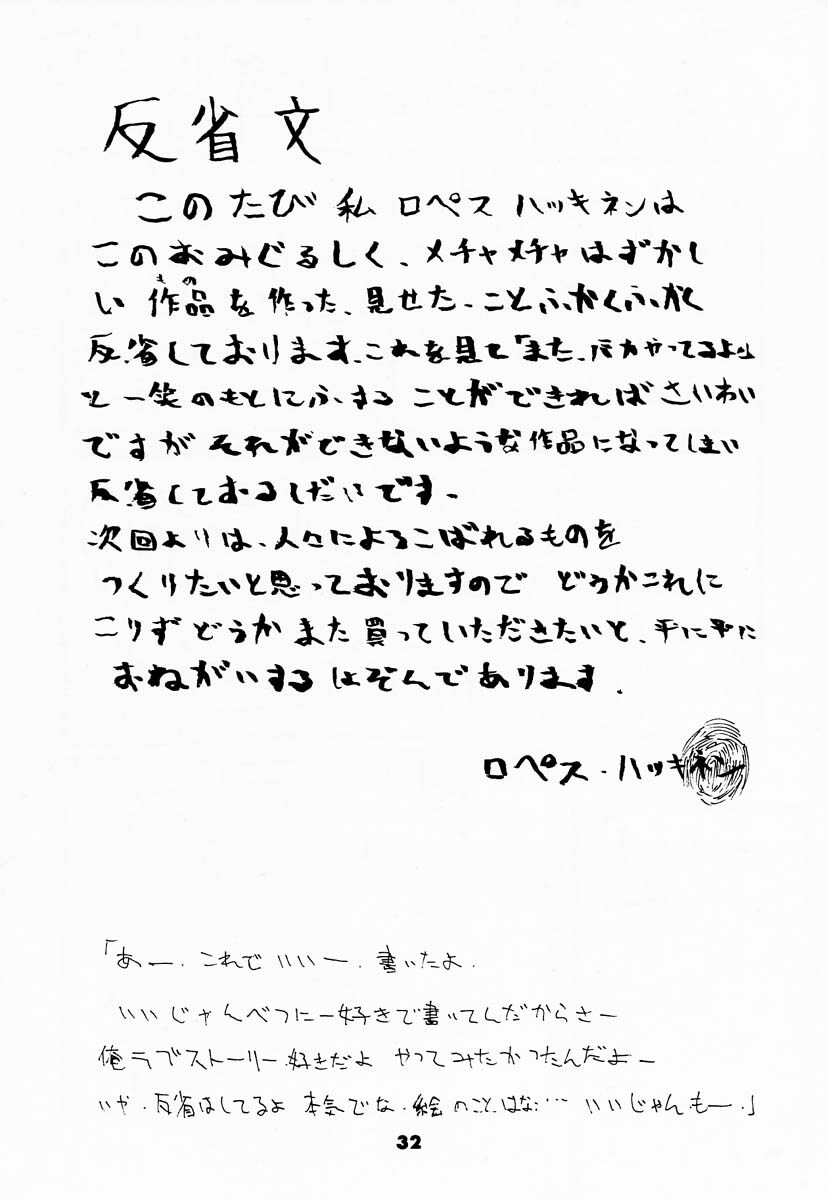 反省文
このたび 私 ロペス ハッキネンは
このおみぐるしく、メチャメチャはずかし
い 作品を作った、見せた、ことふかくふかく
もの
反省しております、これを見て「また、バカやってるよ」
と 一笑のもとにふする ことができればさいわい
ですが それができないような作品になってしまい
反省しておるしだいです。
次回よりは、人々によろこばれるものを
つくりたいと思っておりますので どうかこれに
こりず どうか また 買っていただきたいと、平に平に
おねがいする しょぞんであります.
ロペス・ハッキネン
「あー.これで いいー.書いたよ.
いいじゃんべつにー好きで書いてんだからさー
俺ラブストーリー好きだよ やってみたかったんだよー
いや.反省はしてるよ 本気でな.絵のことはな… いいじゃんもー.」
32